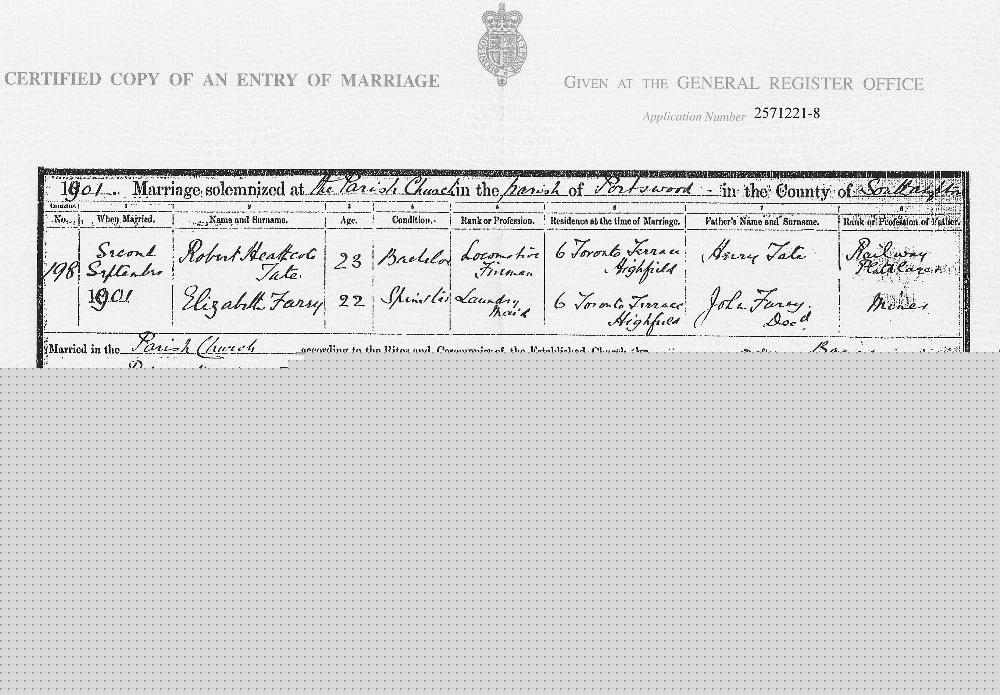 CERTIFIED COPY OF AN ENTRY OF MARRIAGE
GIVEN AT THE GENERAL REGISTER OFFICE
Application Number 2571221-8
1901. Marriage solemnized at the Parish Church in the parish of Portswood - in the County of Southampton
No. When Married. Name and Surname. Age. Condition. Rank or Profession. Residence at the time of Marriage. Father's Name and Surname. Rank or Profession of Father.
198 Second September 1901
Robert Heathcote Tate 23 Bachelor Locomotive Fireman 6 Toronto Terrace Highfield Henry Tate Railway Platelayer
Elizabeth Farry 22 Spinster Laundry Maid 6 Toronto Terrace Highfield John Farry Decd Miner
Married in the Parish Church according to the Rites and Ceremonies of the Established Church